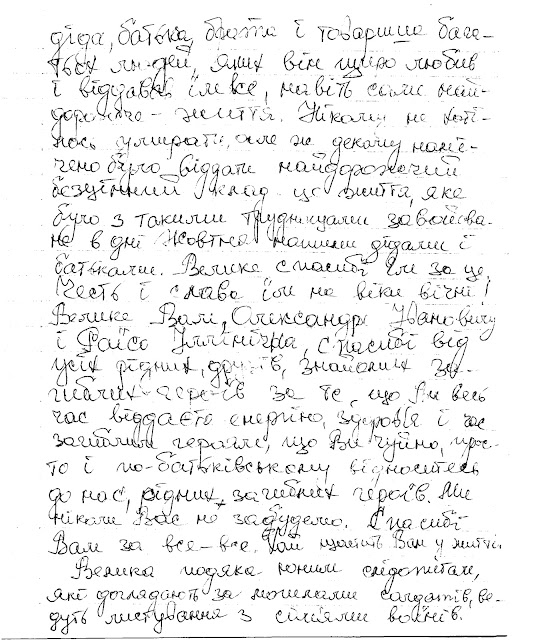 діда, батька, брата і товариша бага-
тьох людей, яких він щиро любив
і віддавав їм все, навіть саме най-
дорожче - життя. Нікому не хоті-
лось умирати, але ж декому намі-
чено було віддати найдорожчий
безцінний клад це життя, яке
було з такими труднощами завойова-
не в дні Жовтня нашими дідами і
батьками. Велике спасибі їм за це,
Честь і слава їм на віки вічні!
Велике Вам, Олександр Іванович
і Раїсо Іллінічна, спасибі від
усіх рідних, друзів, знайомих за-
гиблих героїв за те, що Ви весь
час віддаєте енергію, здоров'я і час
загиблим героям, що Ви чуйно, прос-
то і по-батьківському відноситесь
до нас, рідних загиблих героїв. Ми
ніколи Вас не забудемо. Спасибі
Вам за все-все. Хай щастить Вам у житті.
Велика подяка юним слідопитам,
які доглядають за могилами солдатів, ве-
дуть листування з сім'ями воїнів.